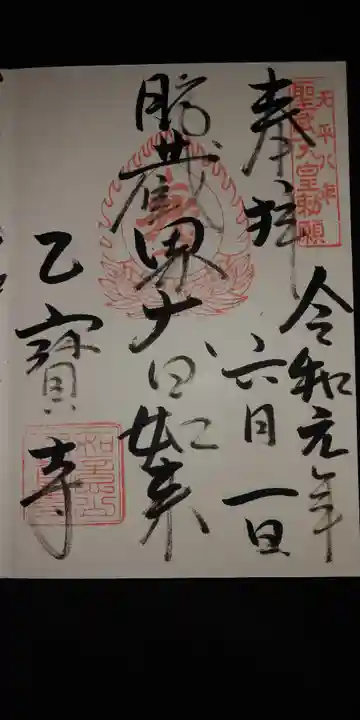 天平八年
聖武天皇勅願
奉拝
令和元年
六月一日
胎蔵界大日如来
乙寶寺